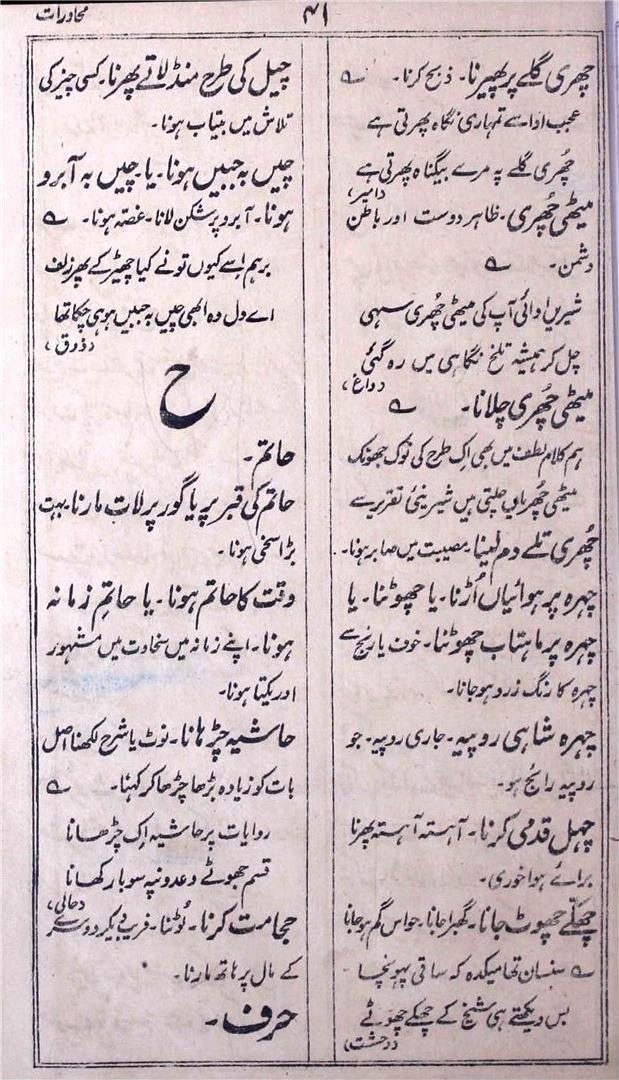 محاورات
۴۱
چھری گلے پر پھیرنا۔ ذبح کرنا۔ ؎
عجب ادا سے تمہاری نگاہ پھرتی ہے
چُھری گلے پہ مرے بیگناہ پھرتی ہے
(امیر)
میٹھی چُھری۔ ظاہر دوست اور باطن
دشمن۔ ؎
شیریں ادائی آپ کی میٹھی چُھری سہی
چل کر ہمیشہ تلخ نگاہی میں رہ گئی
(داغ)
میٹھی چُھری چلانا۔ ؎
ہم کلام لطف میں بھی اک طرح کی نوک جھونک
میٹھی چُھریاں چلتی ہیں شیرینئ تقریر سے
چُھری تلے دم لینا۔ مصیبت میں صابر ہونا۔
چہرہ پر ہوائیاں اُڑنا۔ یا چھوٹنا۔ یا
چہرہ پر ماہتاب چھوٹنا۔ خوف یا رنج سے
چہرہ کا رنگ زرد ہو جانا۔
چہرہ شاہی روپیہ۔ جاری روپیہ۔ جو
روپیہ رائج ہو۔
چہل قدمی کرنا۔ آہستہ آہستہ پھرنا
برائے ہوا خوری۔
چھکے چھوٹ جانا۔ گھبرا جانا۔ حواس گم ہو جانا
؎ سنسان تھا میکدہ کہ ساقی پہونچا
بس دیکھتے ہی شیخ کے چھکے چھوٹے
(وحشت)
چیل کی طرح منڈلاتے پھرنا۔ کسی چیز کی
تلاش میں بیتاب ہونا۔
چیں بہ جبیں ہونا۔ یا۔ چیں بہ آبرو
ہونا۔ آبرو پر شکن لانا۔ غصہ ہونا۔ ؎
برہم اسے کیوں تو نے کیا چھیڑ کے پھر زلف
اے دل وہ ابھی چیں بہ جبیں ہو ہی چکا تھا
(ذوق)
ح
حاتم۔
حاتم کی قبر پر یا گور پر لات مارنا۔ بہت
بڑا سخی ہونا۔
وقت کا حاتم ہونا۔ یا حاتمِ زمانہ
ہونا۔ اپنے زمانہ میں سخاوت میں مشہور
اور یکتا ہونا۔
حاشیہ چڑہانا۔ نوٹ یا شرح لکھنا اصل
بات کو زیادہ بڑھا چڑھا کر کہنا۔ ؎
روایات پر حاشیہ اک چڑھانا
قسم جھوٹے وعدونپہ سو بار کھانا
(حالی)
حجامت کرنا۔ لُوٹنا۔ فریب دیکر دوسرے
کے مال پر ہاتھ مارنا۔
حرف۔